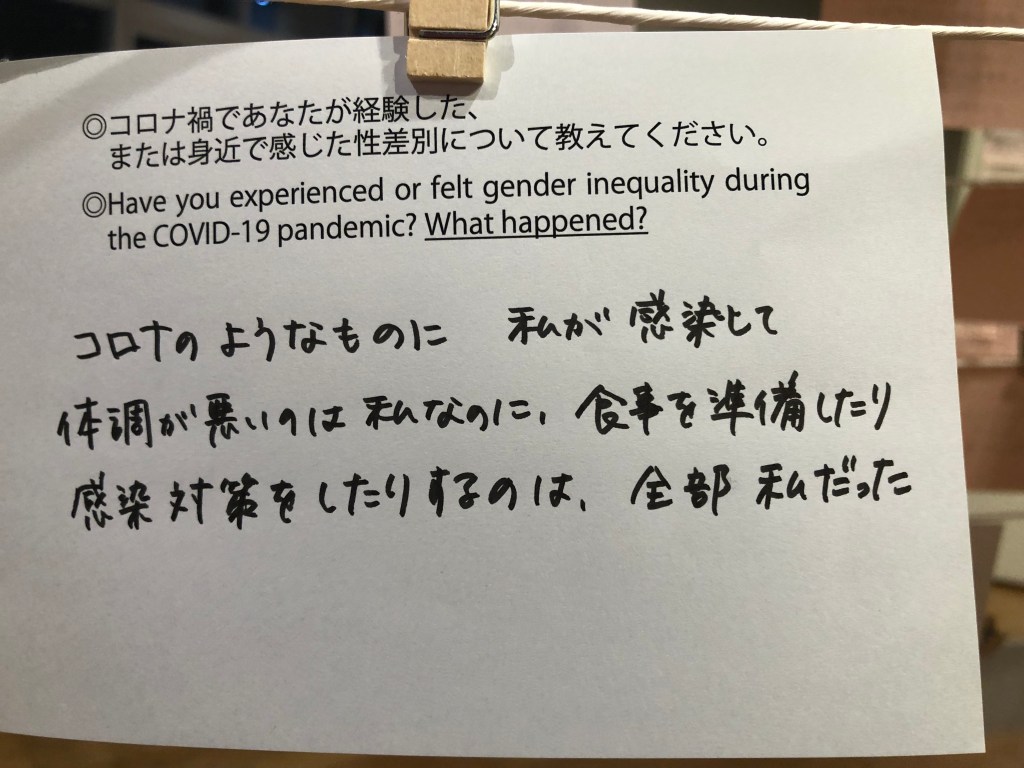 ◎コロナ禍であなたが経験した、
または身近で感じた性差別について教えてください。
◎Have you experienced or felt gender inequality during
the COVID-19 pandemic? What happened?
コロナのようなものに 私が感染して
体調が悪いのは私なのに、食事を準備したり
感染対策をしたりするのは、全部私だった